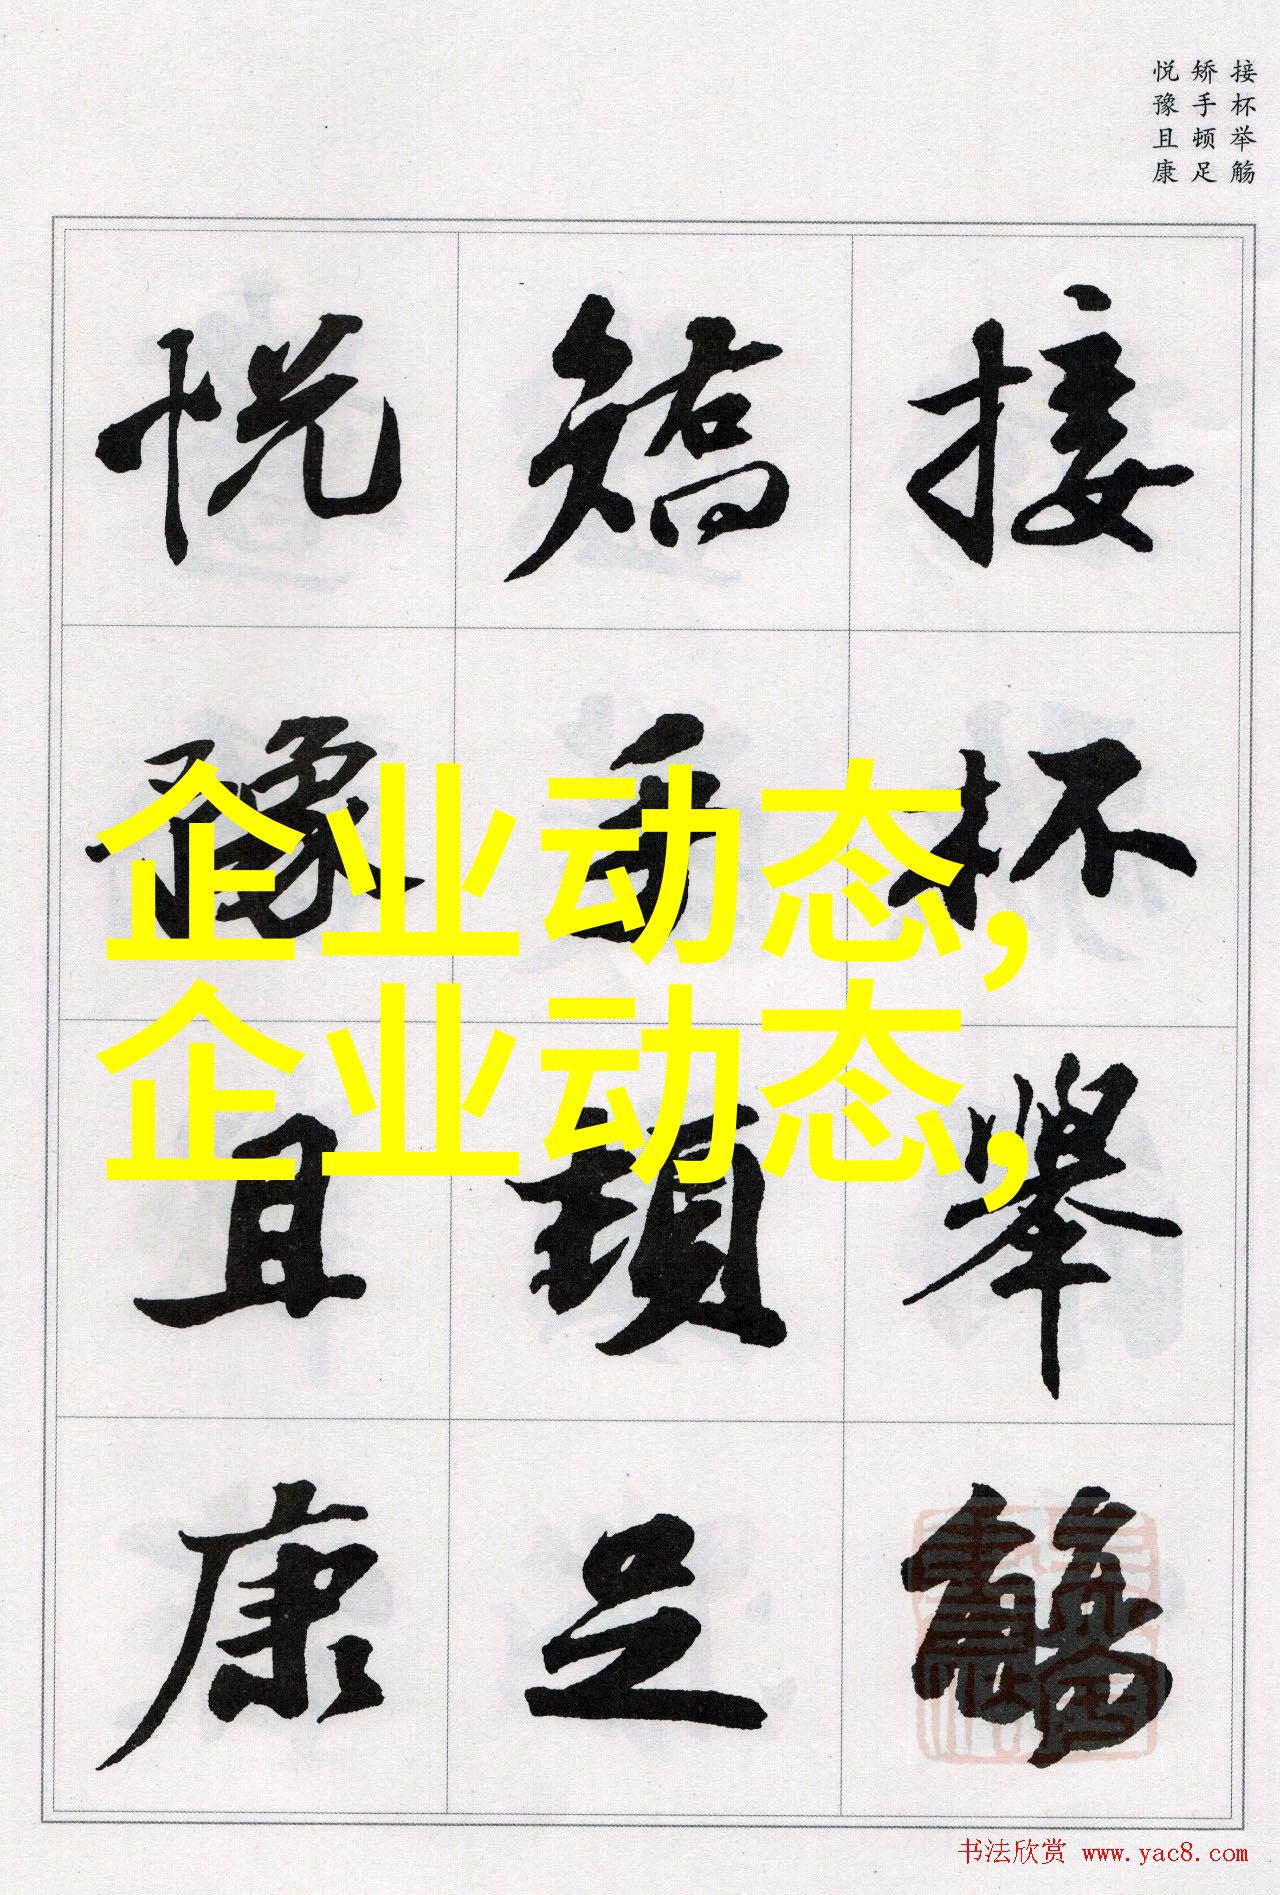 接杯举觞
矫手顿足
悦豫且康
接杯舉觴
矯手頓足
悦豫且康
企业动态,
企业动态,
书法欣赏 www.yac8.com